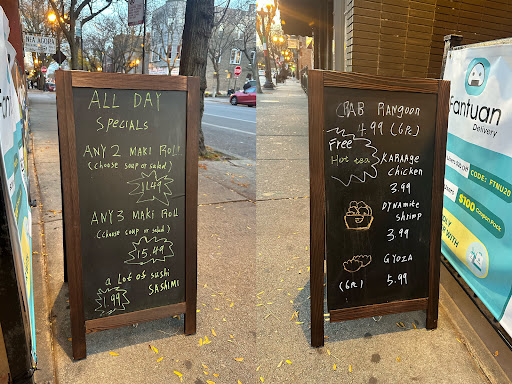 ALL DAY
SPECIALS
ANY 2 MAKI ROLL
(choose soup or salad)
11.49
ANY 3 MAKI Roll
(choose soup or salad)
15.49
a Lot of sushi
SASHIMI
1.99
CRAB RANGOON
4.99 (6pc)
Free
Hot tea
KARAAGE
chicken
3.99
DYNAMITE
shrimp
3.99
GYOZA
(6pc) 5.99
Fantuan
Delivery
CODE: FTNU20
$100 Coupon Pack